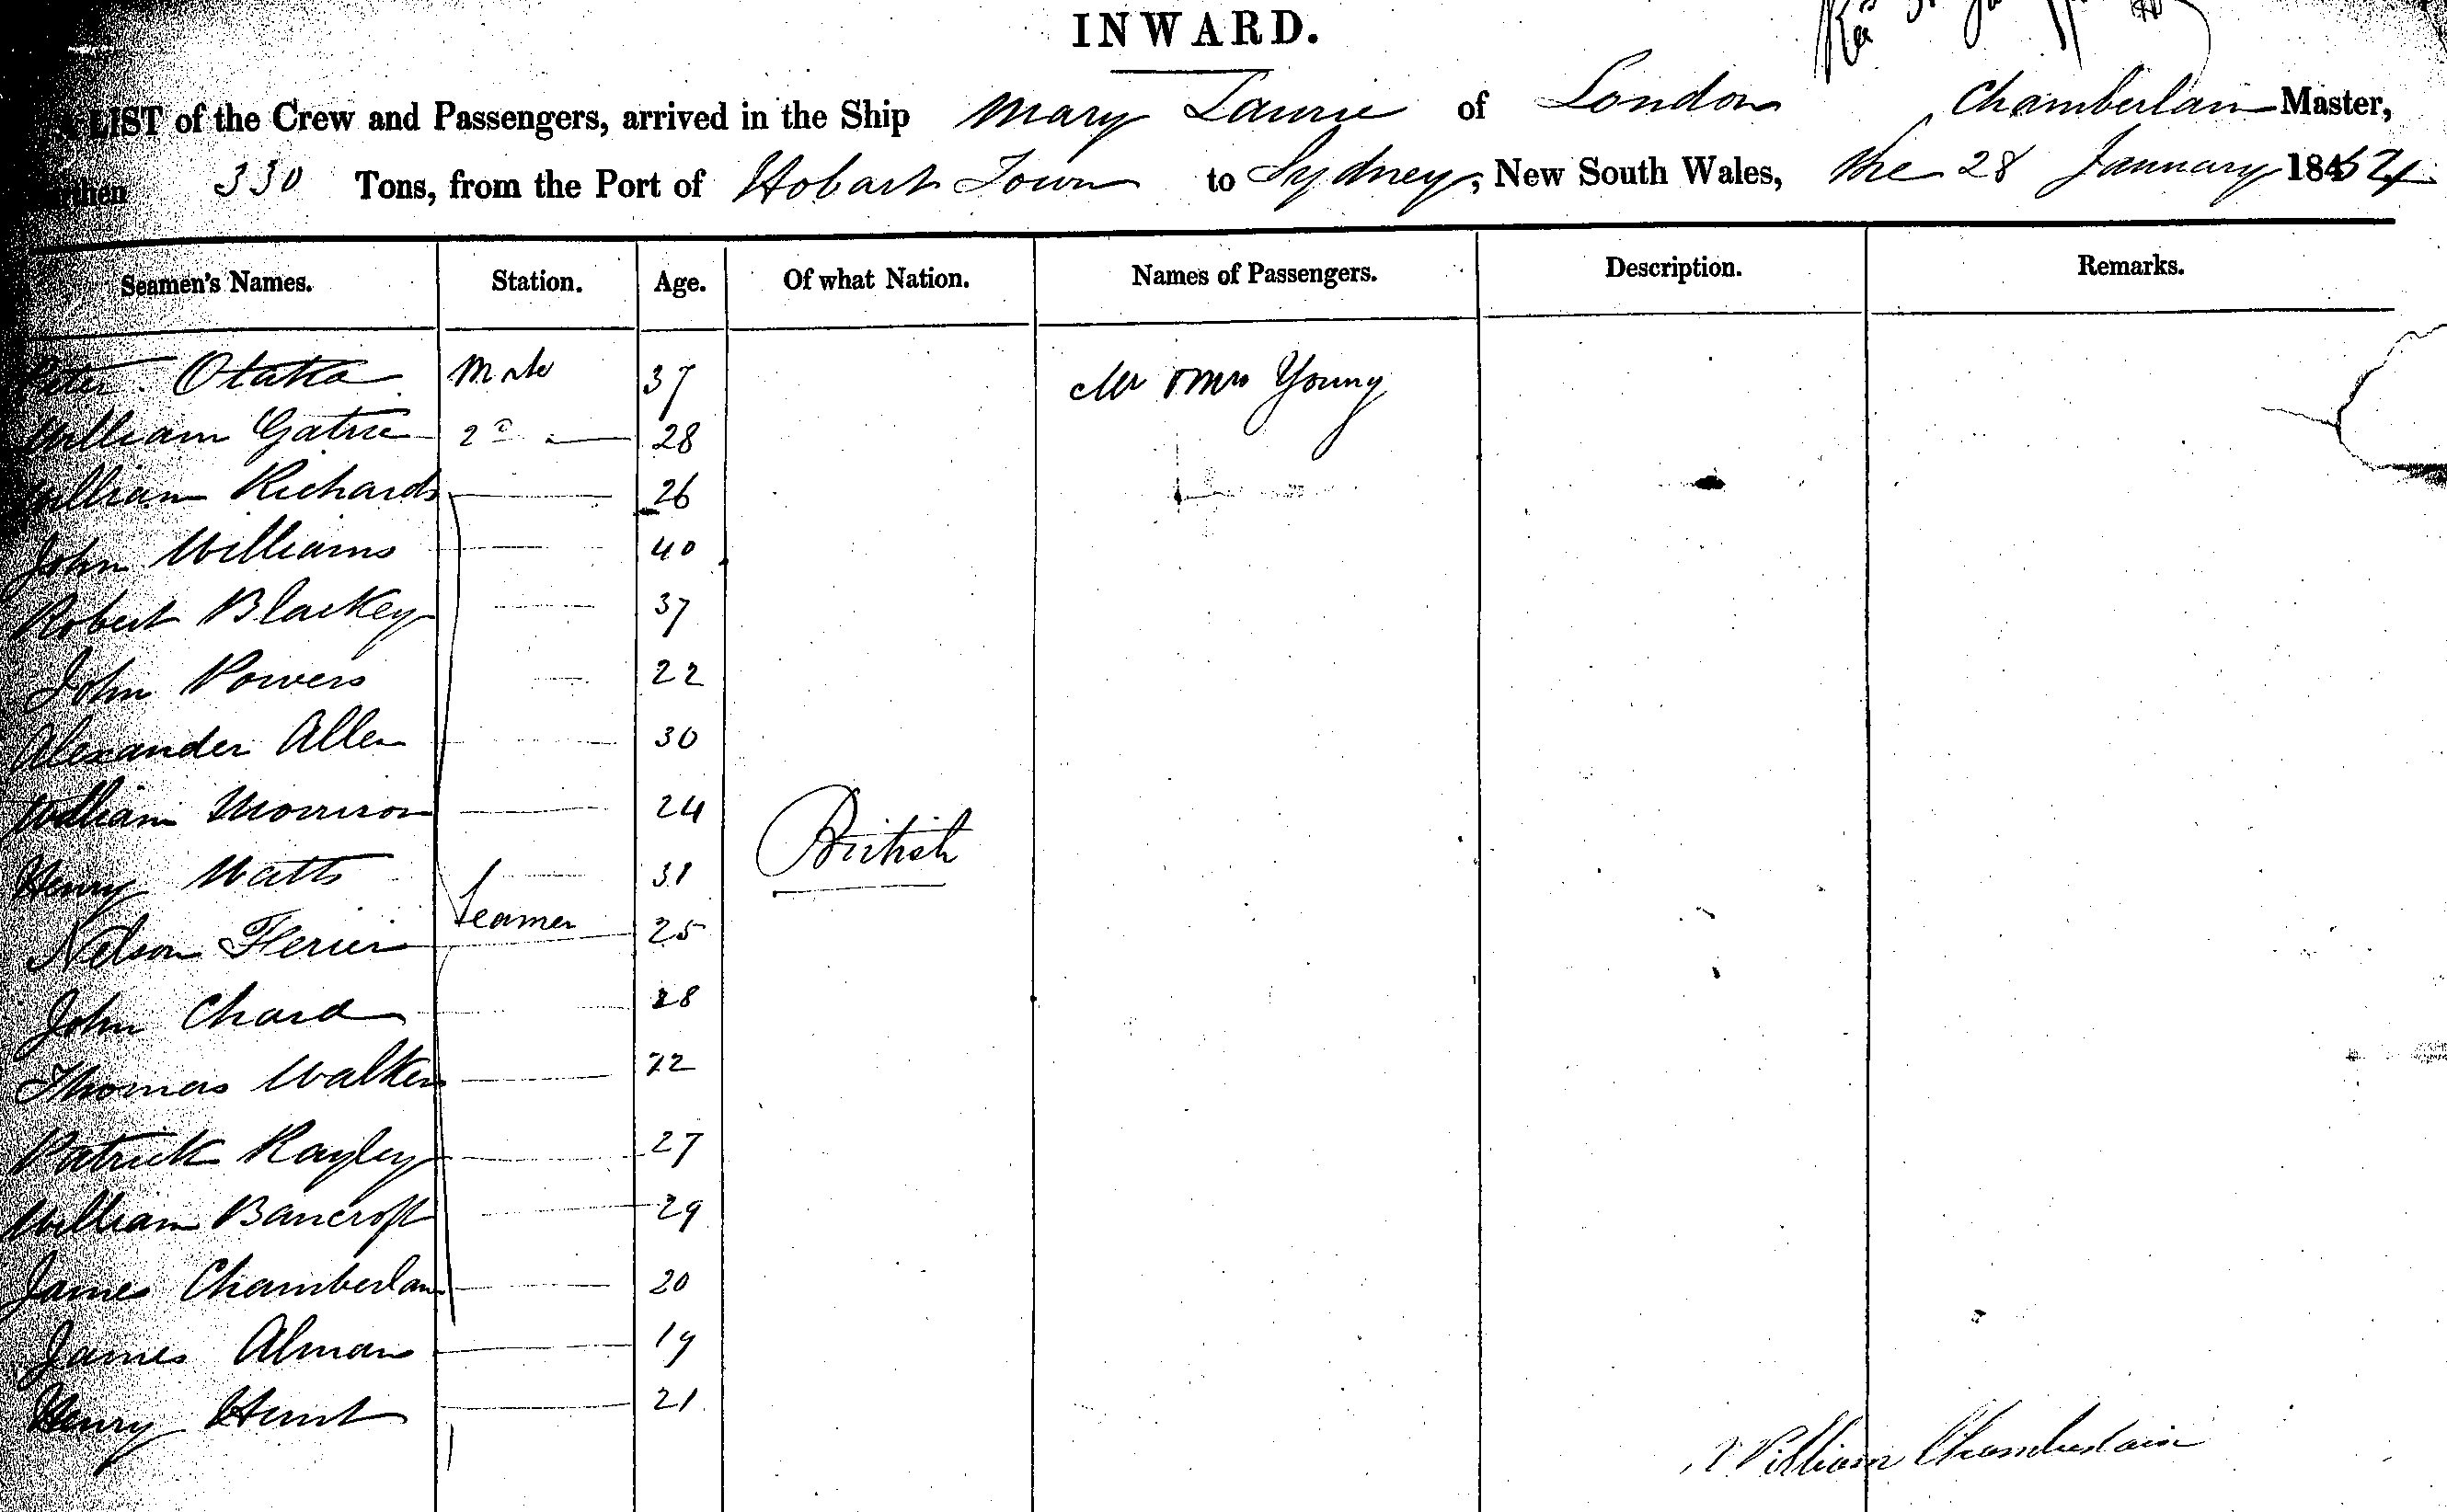 INWARD.
A LIST of the Crew and Passengers, arrived in the Ship Mary Laurie of London Chamberlain Master,
then 330 Tons, from the Port of Hobart Town to Sydney, New South Wales, the 28 January 1854
Seamen's Names. Station. Age. Of what Nation. Names of Passengers. Description. Remarks.
Peter Otatta Mate 37 Mr & Mrs Young
William Gatrie 2d 28
William Richards 26
John Williams 40
Robert Blackey 37
John Powers 22
Alexander Allen 30
William Morrison 24 British
Henry Watts 31
Nelson Seamen 25
John Chard 28
Thomas Walker 22
Patrick Rayley 27
William Bancroft 29
James Chamberlain 20
James Alman 19
Henry Hunt 21
William Chamberlain